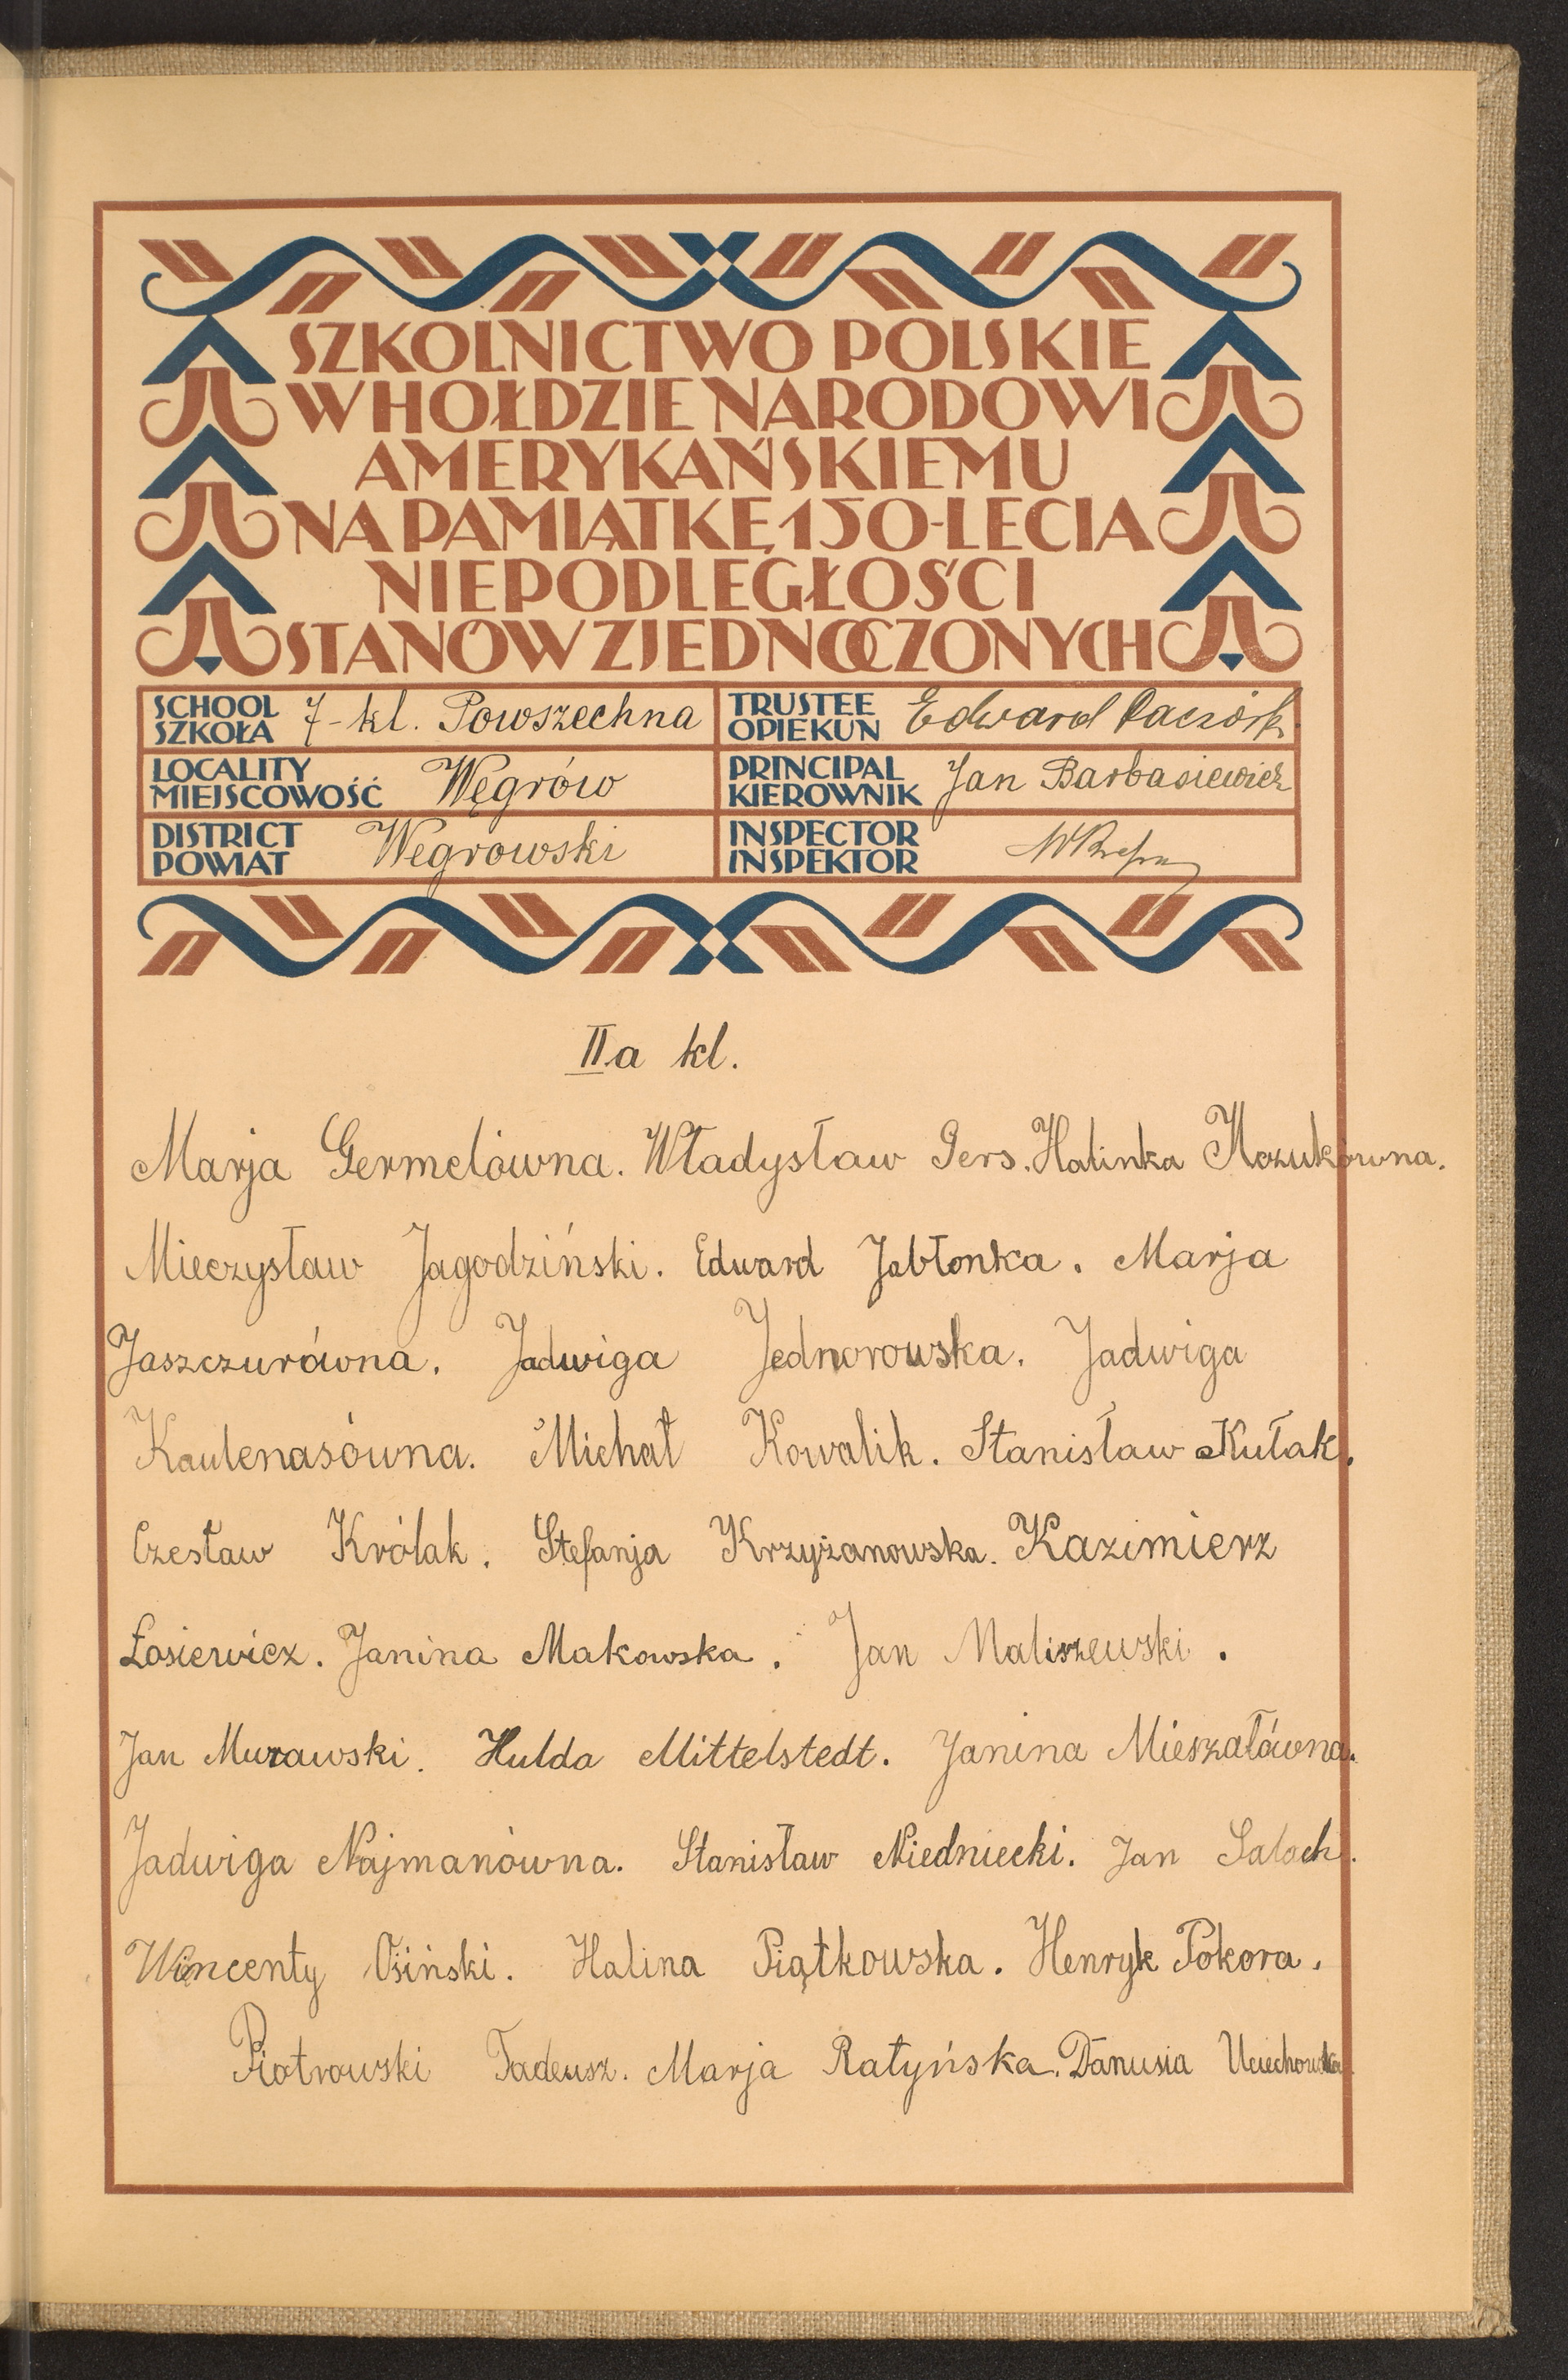 SZKOLNICTWO POLSKIE
W HOŁDZIE NARODOWI
AMERYKAŃSKIEMU
NA PAMIĄTKĘ 150-LECIA
NIEPODLEGŁOŚCI
STANÓW ZJEDNOCZONYCH
SCHOOL
SZKOŁA 7-kl. Powszechna
TRUSTEE
OPIEKUN Edward
LOCALITY
MIEJSCOWOŚĆ Węgrów
PRINCIPAL
KIEROWNIK Jan Barbasiewicz
DISTRICT
POWIAT Wegrowski
INSPECTOR
INSPEKTOR
II.a kl.
Marja Germelówna. Władysław Gers. Halinka
Mieczysław Jagodziński. Edward Jabłonka. Marja
Jaszczurówna. Jadwiga Jednorowska. Jadwiga
Kaulenasówna. Michał Kowalik. Stanisław Kułak.
Czesław Królak. Stefanja Krzyżanowska. Kazimierz
Łosiewicz. Janina Makowska. Jan Maliszewski.
Jan Murawski. Hulda Mittelstedt. Janina Mieszałówna.
Jadwiga Najmanówna. Stanisław Niedniecki. Jan
Wincenty Osiński. Halina Piątkowska. Henryk Pokora.
Piotrowski Tadeusz. Marja Ratyńska. Danusia Uciechowska